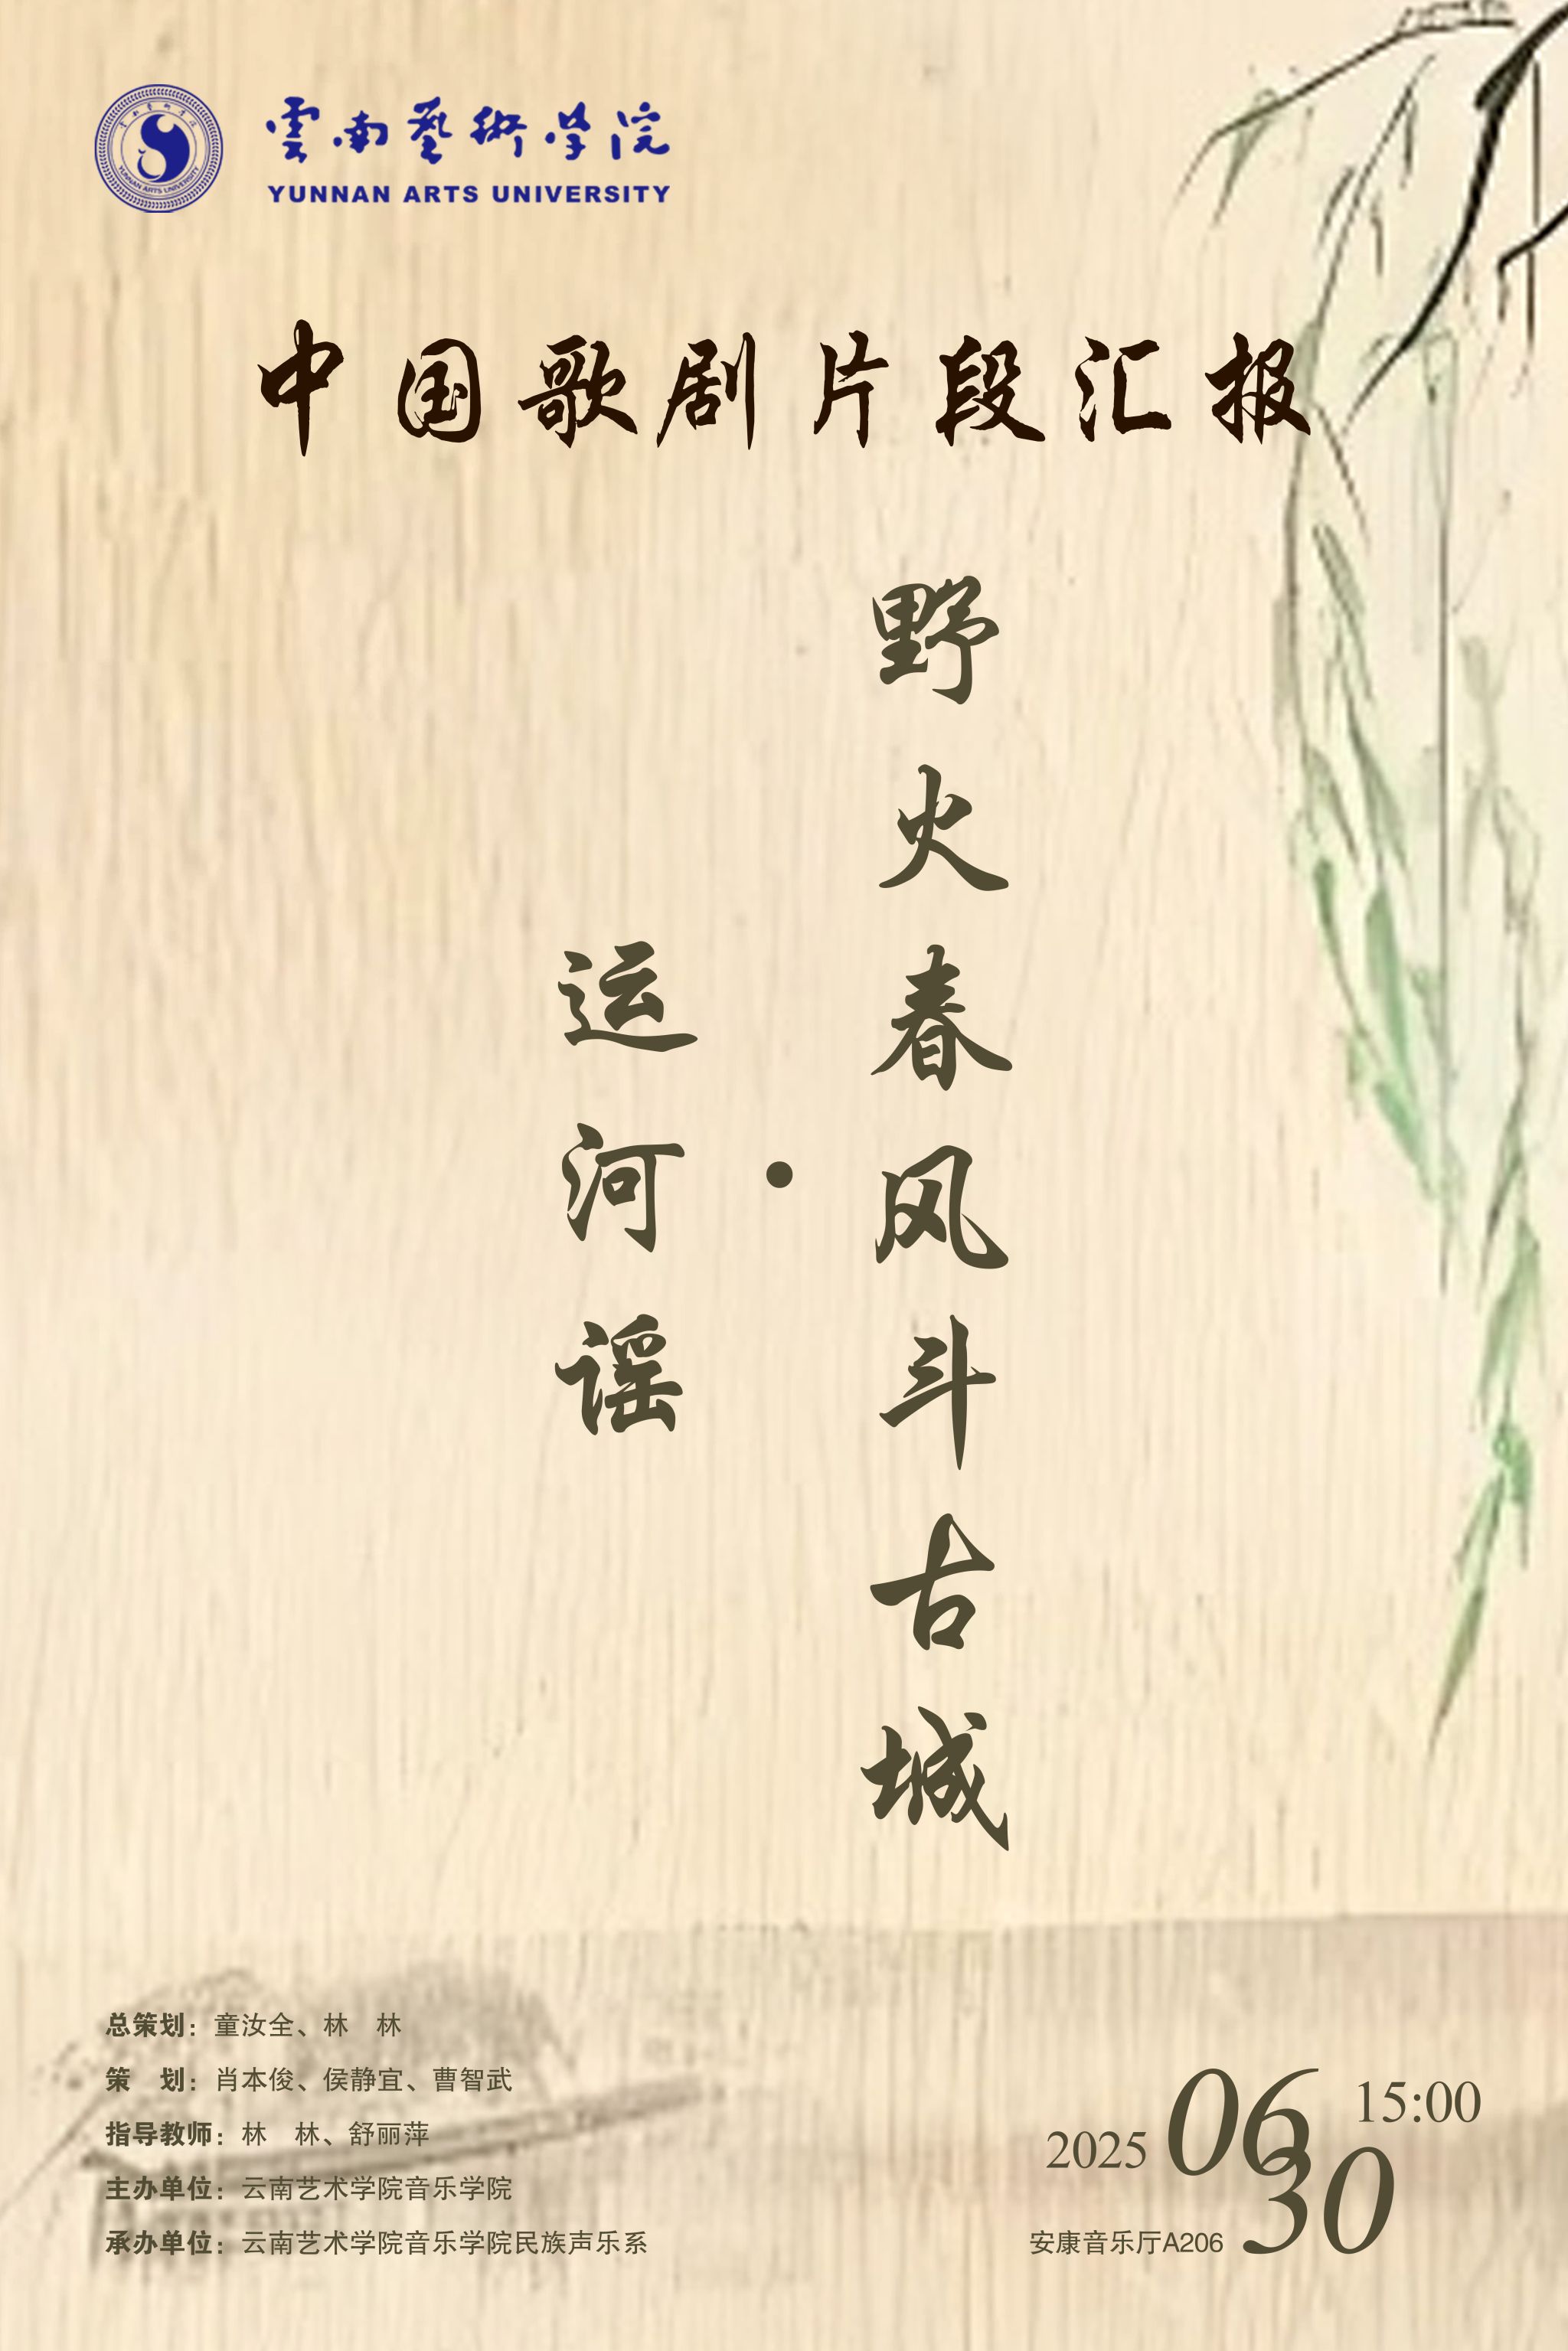 雲南藝術学院
YUNNAN ARTS UNIVERSITY
YUNNAN ARTS UNIVERSITY
中国歌剧片段汇报
野火春风斗古城
·
运河谣
总策划：童汝全、林　林
策　划：肖本俊、侯静宜、曹智武
指导教师：林　林、舒丽萍
主办单位：云南艺术学院音乐学院
承办单位：云南艺术学院音乐学院民族声乐系
2025 06 30 15:00
安康音乐厅A206